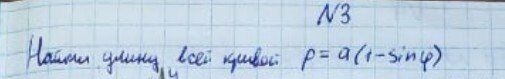 N3
Найти длину всей кривой ρ = a(1-sinφ)